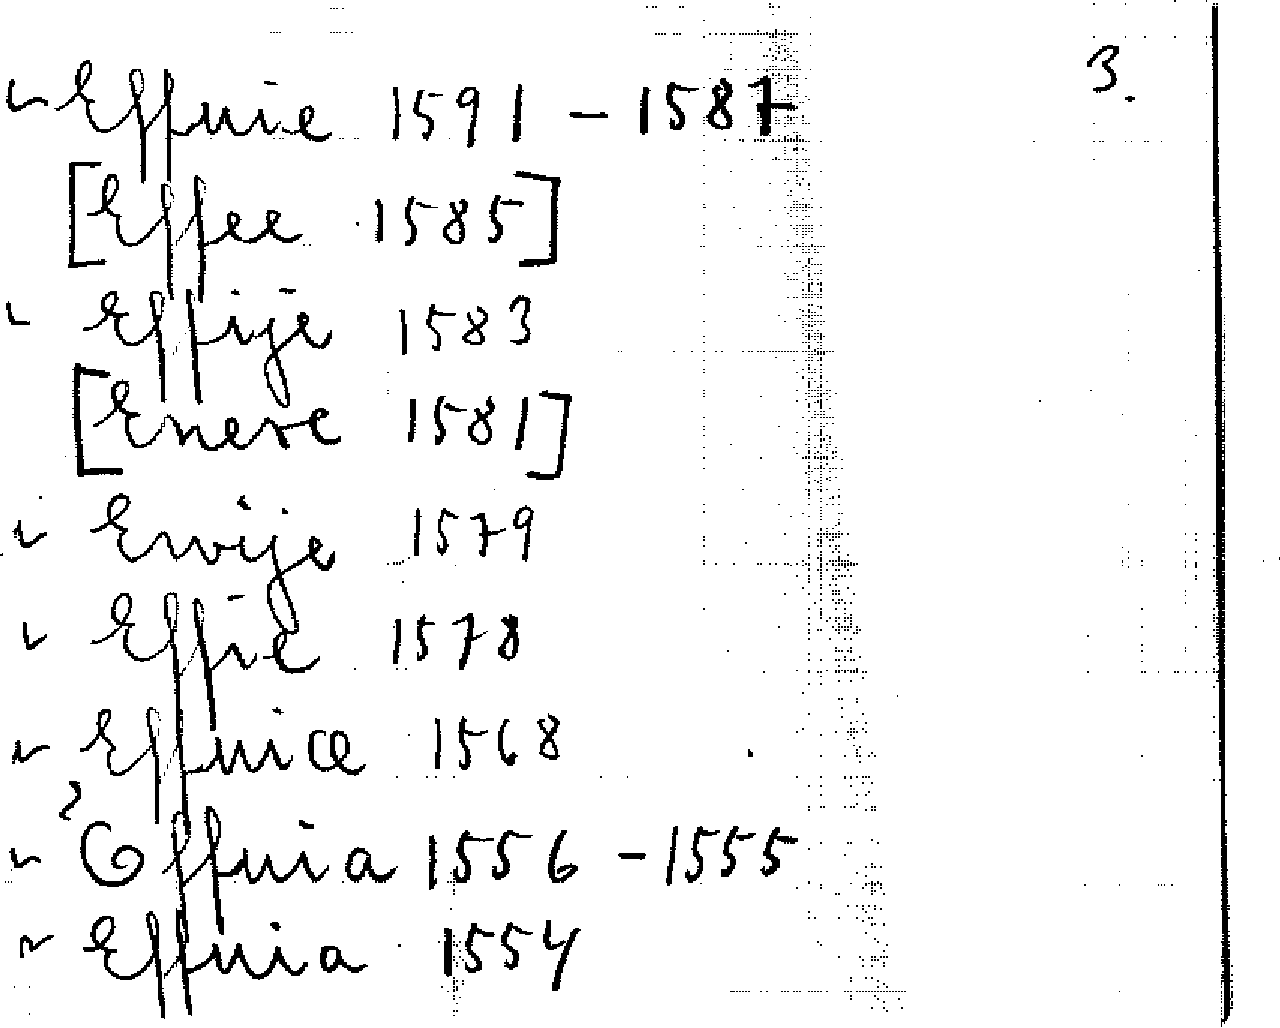 3.
✓ Effnie 1591 - 1587
[Effee 1585]
✓ Effije 1583
[Enere 1581]
✓ Envije 1579
✓ Effie 1578
✓ Effnice 1568
? ✓ Effnia 1556 - 1555
✓ Effnia 1554